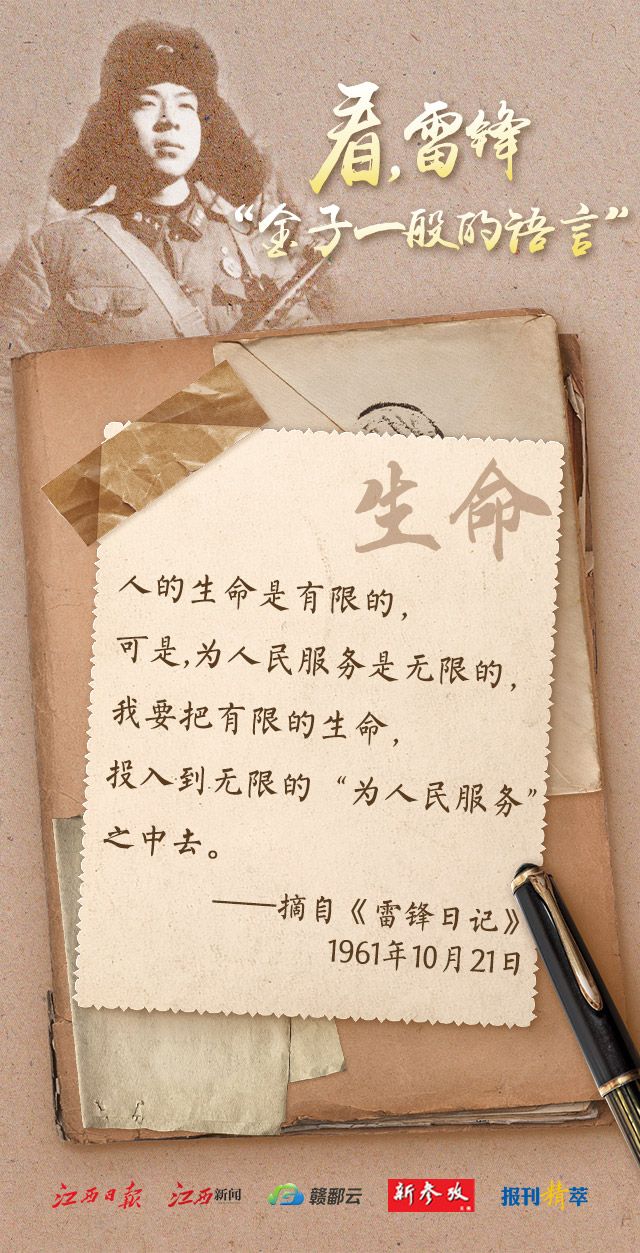 看,雷锋
“金子一般的语言”
生命
人的生命是有限的，
可是,为人民服务是无限的，
我要把有限的生命，
投入到无限的“为人民服务”
之中去。
——摘自《雷锋日记》
1961年10月21日
江西日报 江西新闻 赣鄱云 新参考 报刊精萃